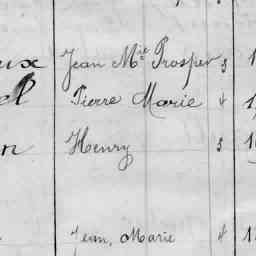 ux Jean Mie Prosper 3 1
el Pierre Marie 4 1
n Henry 3 1
Jean, Marie 4 1